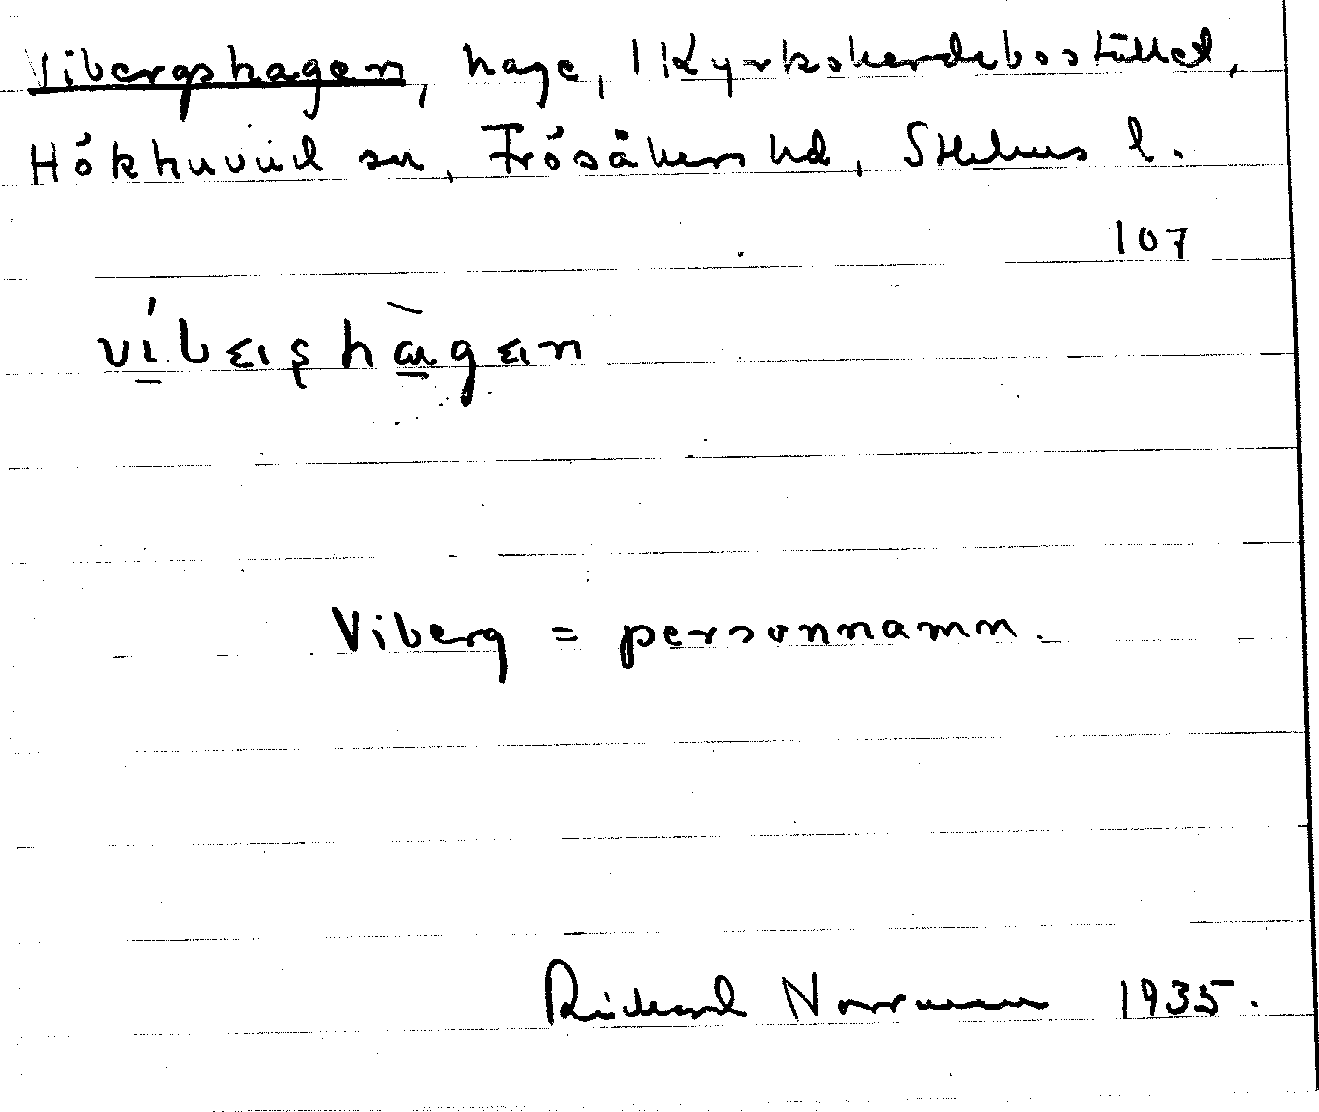 Vibergshagen, hage, 1 Kyrkoherdebostället,
Hökhuvud sn, Frösåkers hd, Sthlms l.
107
Viberg = personnamn.
Rickard Norrman 1935.